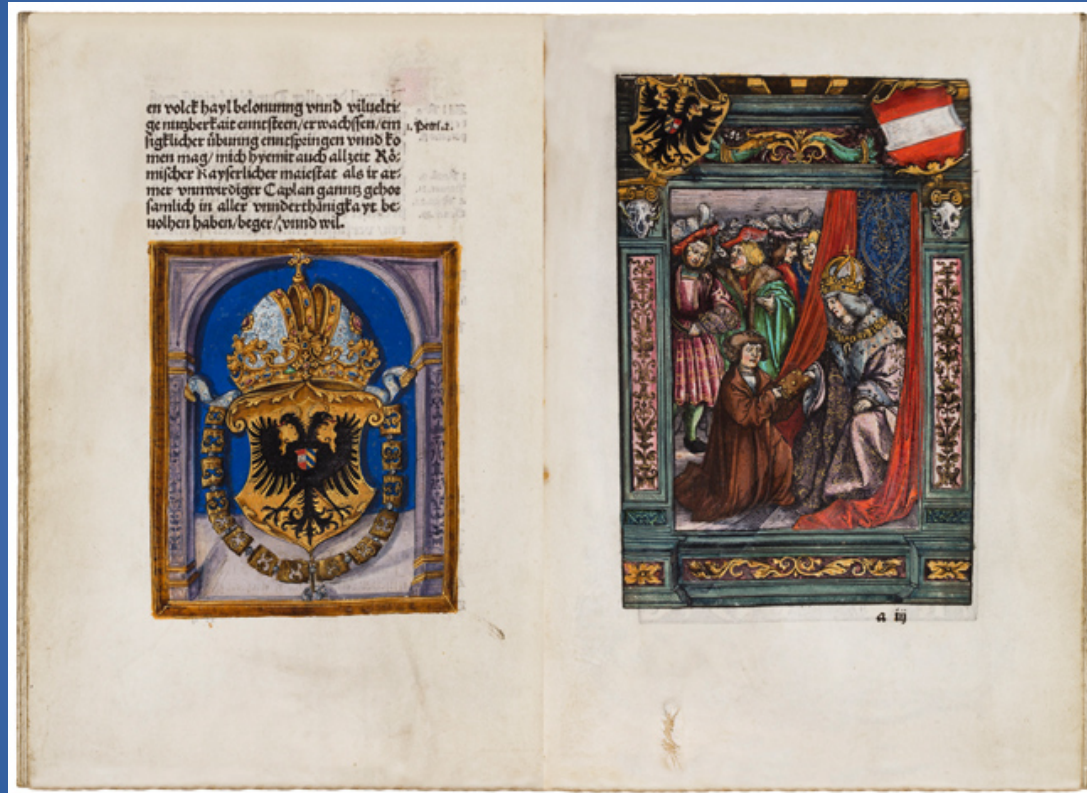 en volck hayl belonunng vnnd viluelti⸗
ge nutzberkait enntsteen/erwachssen/em
sigklicher übunng enntspringen vnnd ko
men mag/ mich hyemit auch allzeit Rö⸗
mischer Kayserlicher maiestat als ir ar⸗
mer vnnwirdiger Caplan ganntz gehor
samlich in aller vnnderthänigkayt be⸗
uolhen haben/beger/vnnd wil.
1. Petri.2.
a iij